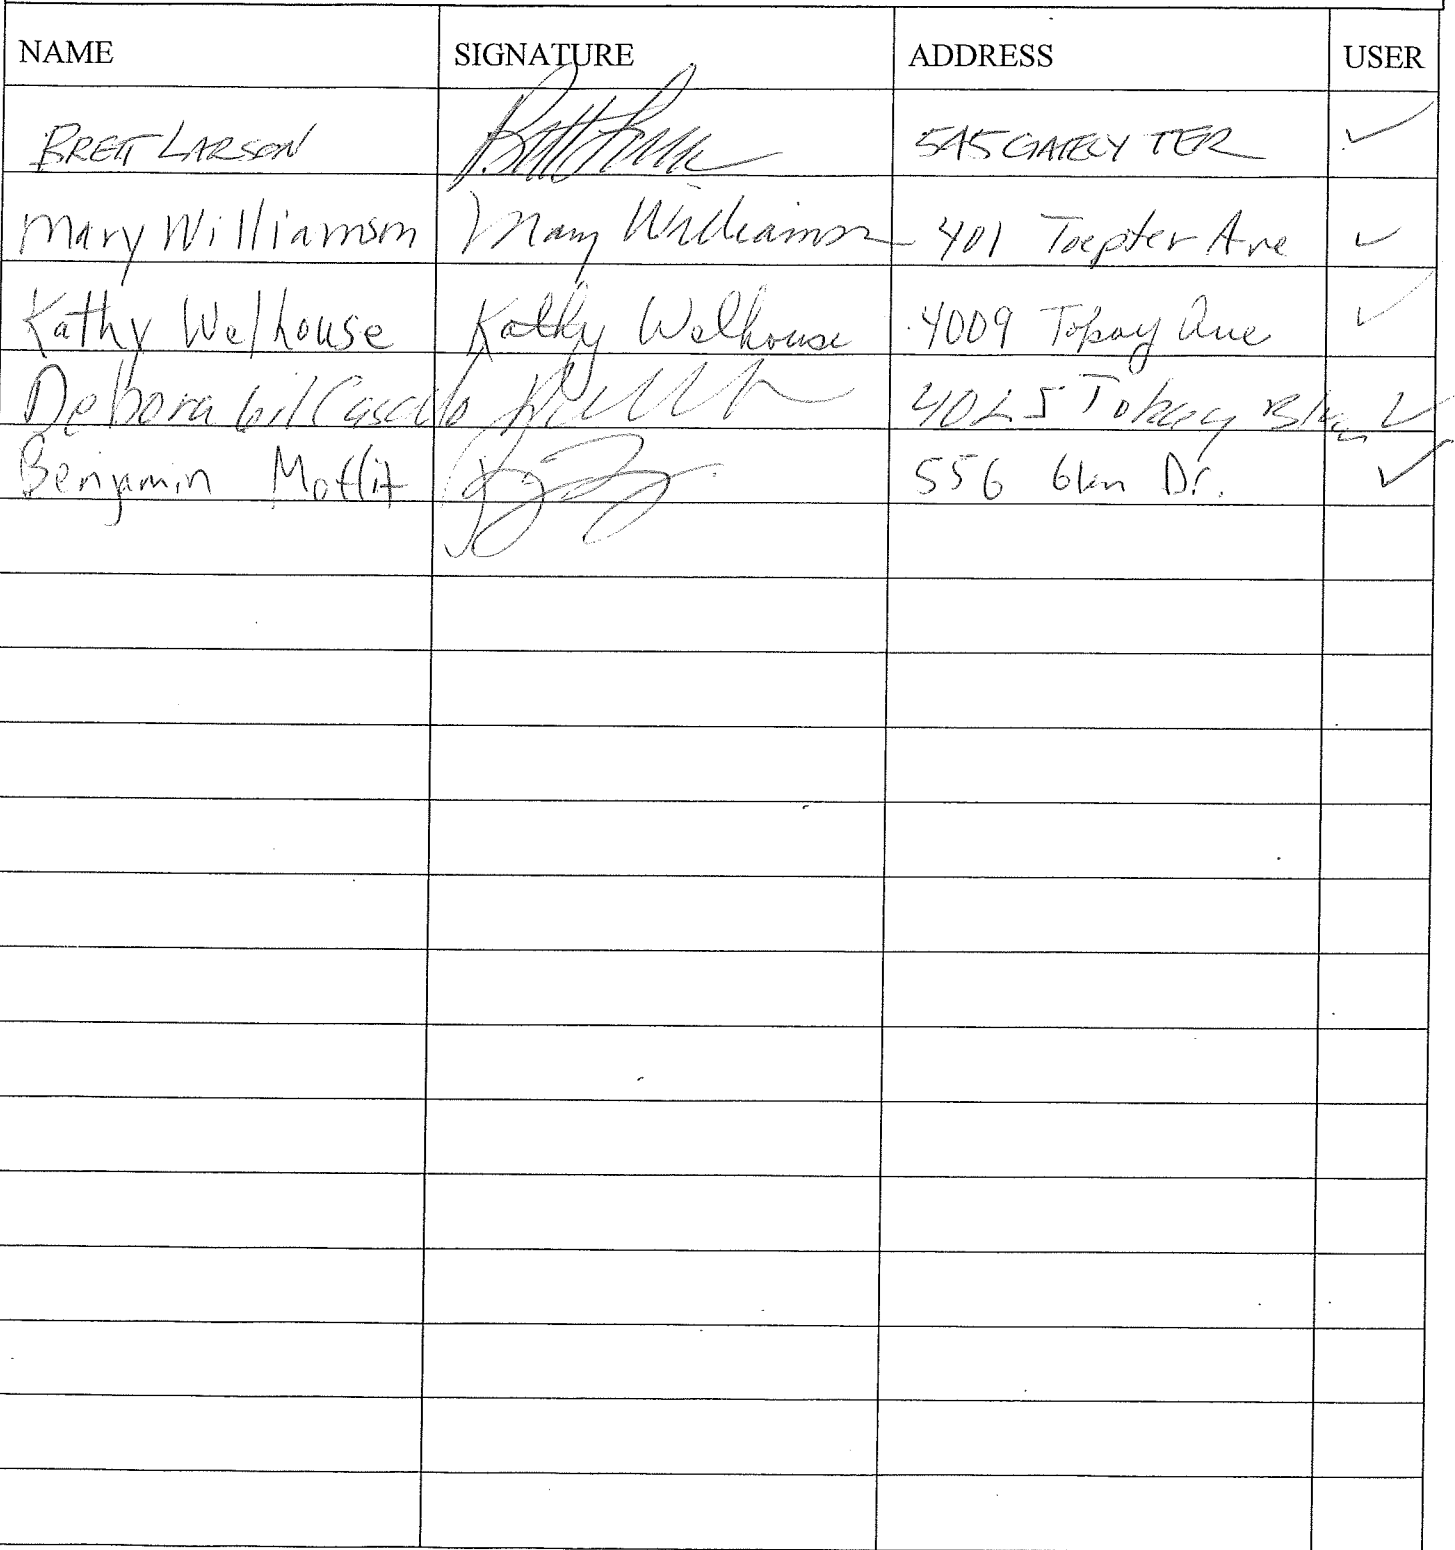 NAME SIGNATURE ADDRESS USER
BRETT LARSON 545 GATELY TER ✓
Mary Williamson Mary Williamson 401 Toepfer Ave ✓
Kathy Welhouse Kathy Welhouse 4009 Tokay Ave ✓
Debora Gil Casado 4025 Tokay Blvd ✓
Benjamin Moffit 556 Dr. ✓